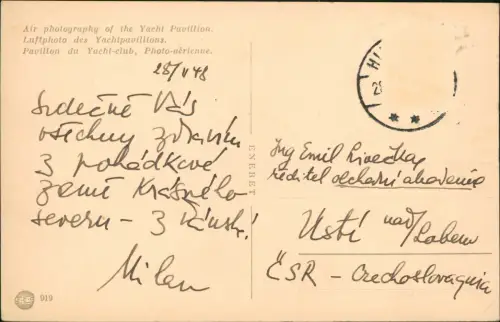 Air photography of the Yacht Pavillion.
Luftphoto des Yachtpavillions.
Pavillon du Yacht-club, Photo-aérienne.
28/V 48
Srdečně Vás
všechny zdravím
z pohádkové
země krásného
severu – z Dánska!
Milan
ENERET
Ing Emil
ředitel obchodní akademie
Ústí nad/Labem
ČSR – Czechoslovaquia
919